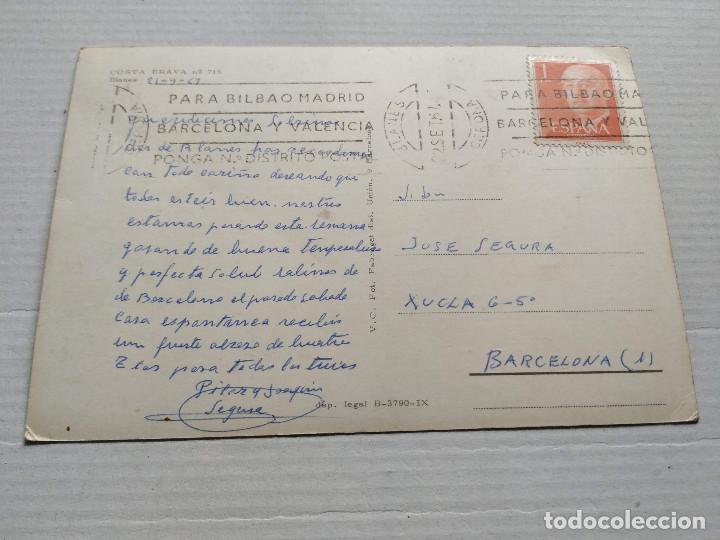 COSTA BRAVA nº 715
Blanes 21-9-67
PARA BILBAO MADRID
BARCELONA Y VALENCIA
PONGA N.º DISTRITO POSTAL
queridisimos Sobrinos
desde Blanes os recordamos
con todo cariño deseando que
todos esteis bien. nostros
estamos pasando esta semana
gozando de buena temperatura
y perfecta salud salimos de
de Barcelona el pasado sabado
casa espontanea recibis
un fuerte abrazo de vuestro
Tios para todos los tuyos
Pilar y Joaquin
Segura
dep. legal B-3790-IX
V. C. Fot. Prohibida
BLANES
22 SET 67
GERONA
1
ESPAÑA
PARA BILBAO MA
BARCELONA Y VAL
PONGA N.º DIS TO
S. Dn
JOSE SEGURA
XUCLA 6-5º
BARCELONA (1)
todocoleccion.net